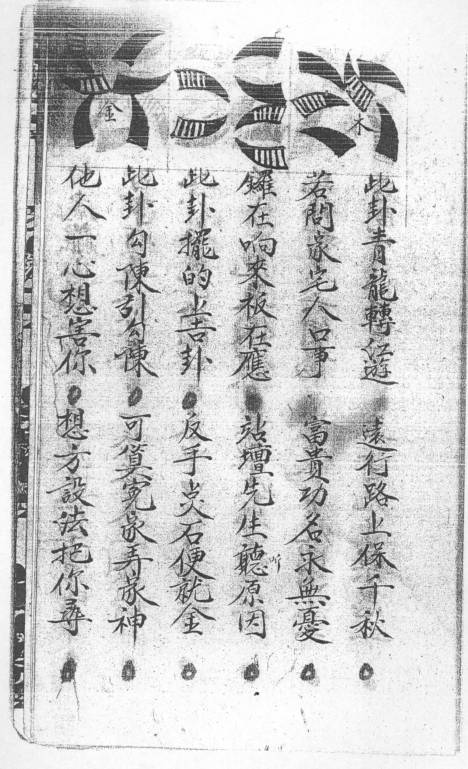 木
此卦青龍轉逰 遠行路上保千秋
若問家宅人口事 富貴功名永無憂
鑼在响來板在應 站壇先生聽原因
此卦擺的上吉卦 反手点石便就金
金
此卦勾陳引勾陳 可算寃家弄家神
他人一心想害你 想方設法把你尋